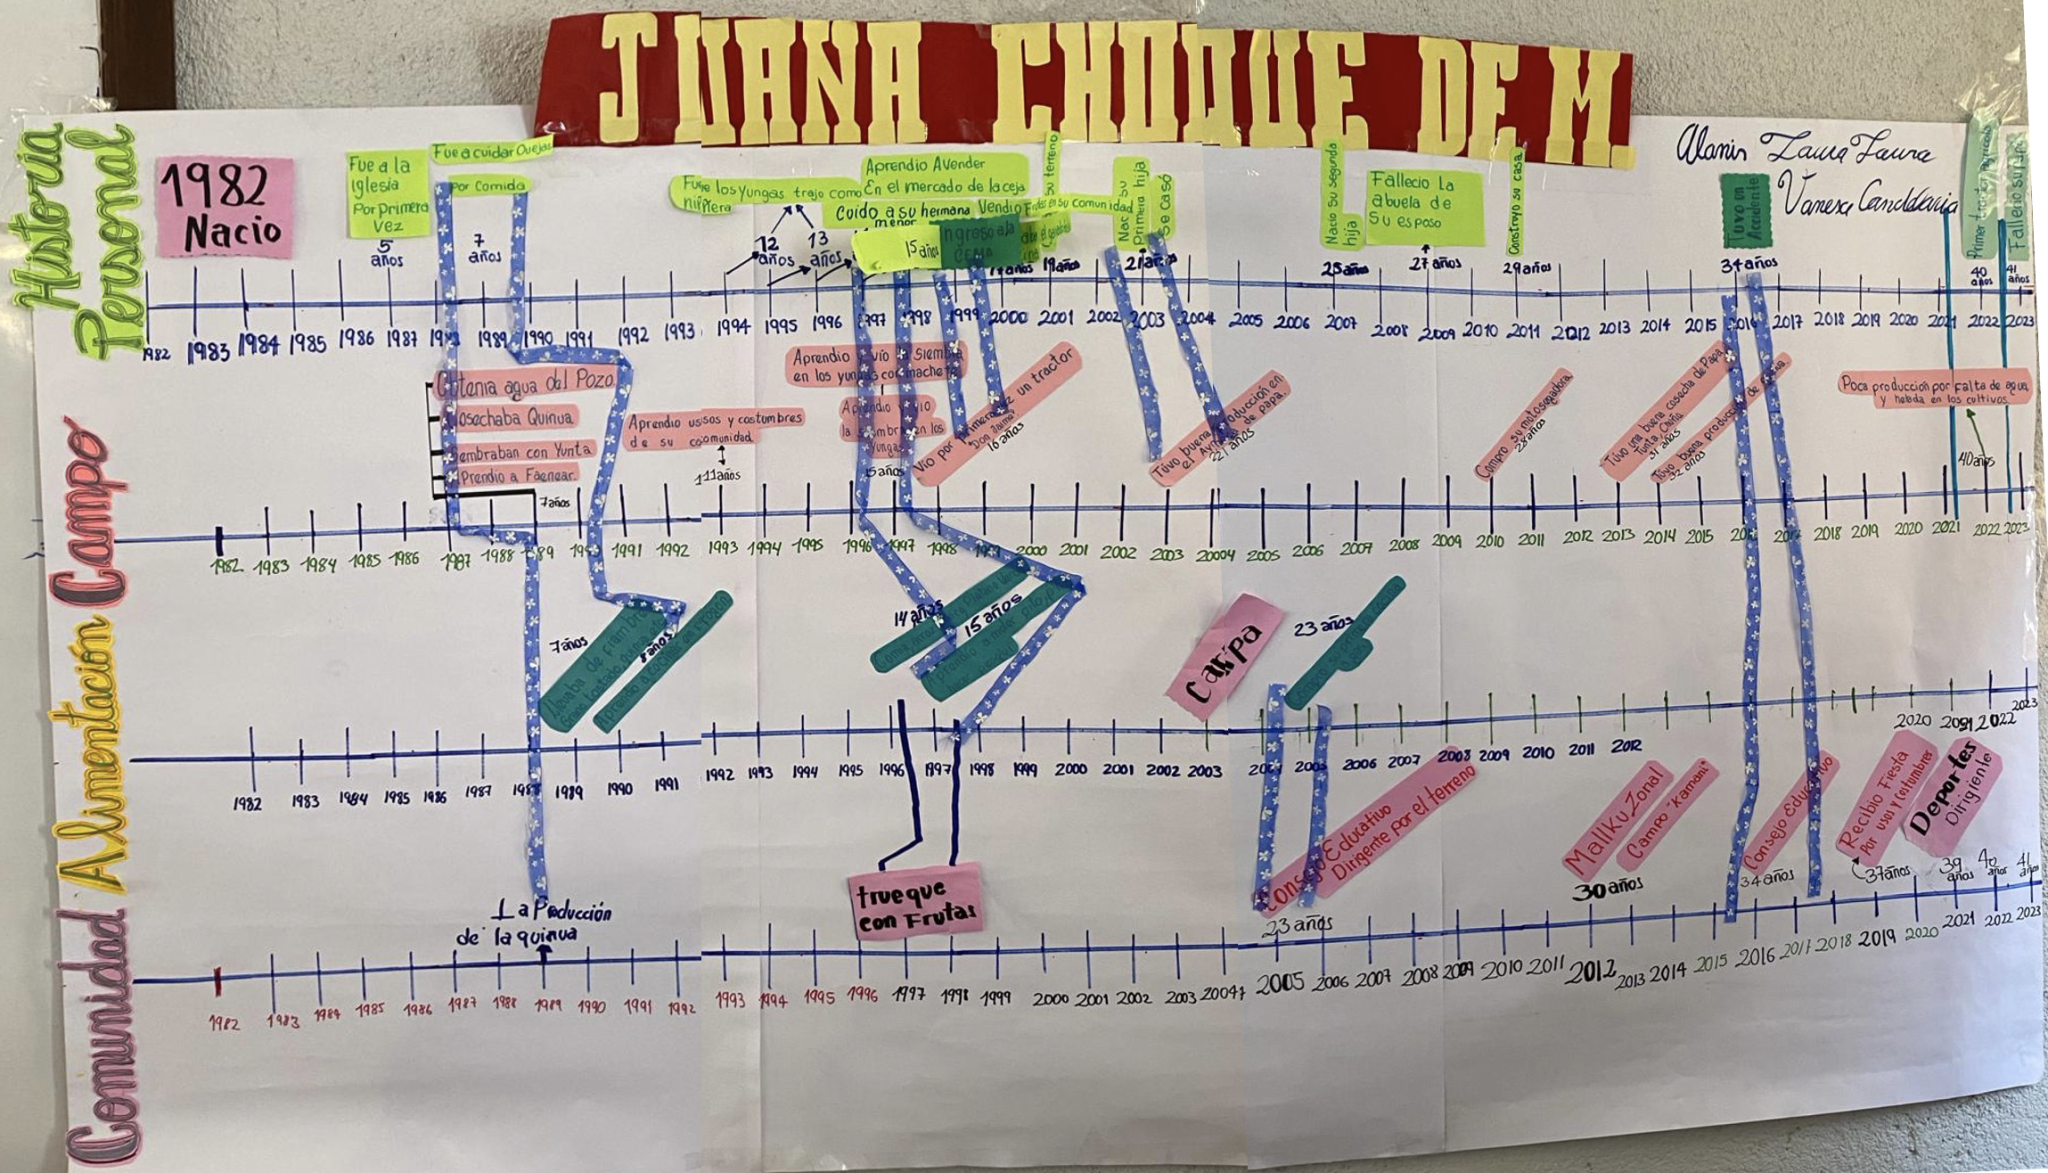 JUANA CHOQUE DE M.
Alanis Laura Laura
Vanesa Candelaria
Historia
Personal
1982
Nacio
Fue a la
iglesia
Por Primera
Vez
5
años
Fue a cuidar Ovejas
por Comida
7
años
Fue los Yungas trajo como
niñera
12
años
13
años
Aprendio A vender
En el mercado de la ceja
Cuido a su hermana
menor
Vendio
en su comunidad
15 años
ngreso a la
su terreno
19 años
Nacio su
Primera hija
Se casó
21 años
Nacio su segunda
hija
25 años
Fallecio la
abuela de
su esposo
27 años
Construyo su casa
29 años
Tuvo un
Accidente
34 años
Primer
40
años
Fallecio su
41
años
1982 1983 1984 1985 1986 1987 1989 1990 1991 1992 1993 1994 1995 1996 1997 1998 1999 2000 2001 2002 2003 2004 2005 2006 2007 2008 2009 2010 2011 2012 2013 2014 2015 2016 2017 2018 2019 2020 2021 2022 2023
Campo
Obtenia agua del Pozo
Cosechaba Quinua
Sembraban con Yunta
Prendio a Faenear
7 años
Aprendio ussos y costumbres
de su coomunidad
11 años
Aprendio y vío la Siembra
en los yungas con machete
Aprendio
la siembra en los
Yungas
15 años
Vio por primera vez un tractor
Don Jaime
16 años
Túvo buena producción en
el Aynoka de papa.
21 años
Compro su motosegadora
28 años
Túvo una buena cosecha de Papa
Tunta,
31 años
Túvo buena produccion de
32 años
Poca producción por falta de agua
y helada en los cultivos.
40 años
1982 1983 1984 1985 1986 1987 1988 1991 1992 1993 1994 1995 1996 1997 1998 2000 2001 2002 2003 20004 2005 2006 2007 2008 2009 2010 2011 2012 2013 2014 2015 2018 2019 2020 2021 2022 2023
Alimentación
7 años
8 años
14 años
15 años
Carpa
23 años
1982 1983 1984 1985 1986 1987 1988 1989 1990 1991 1992 1993 1994 1995 1996 1997 1998 1999 2000 2001 2002 2003 2004 2005 2006 2007 2008 2009 2010 2011 2012 2020 2021 2022 2023
Comunidad
La Producción
de la quinua
trueque
con Frutas
Consejo Educativo
Dirigente por el terreno
23 años
Mallku Zonal
Campo "Kamani"
30 años
Consejo Educativo
34 años
Recibio Fiesta
Por usos y costumbres
37 años
Deportes
Dirigiente
39
años
40
años
41
años
1982 1983 1984 1985 1986 1987 1988 1989 1990 1991 1992 1993 1994 1995 1996 1997 1998 1999 2000 2001 2002 2003 2004 2005 2006 2007 2008 2009 2010 2011 2012 2013 2014 2015 2016 2017 2018 2019 2020 2021 2022 2023